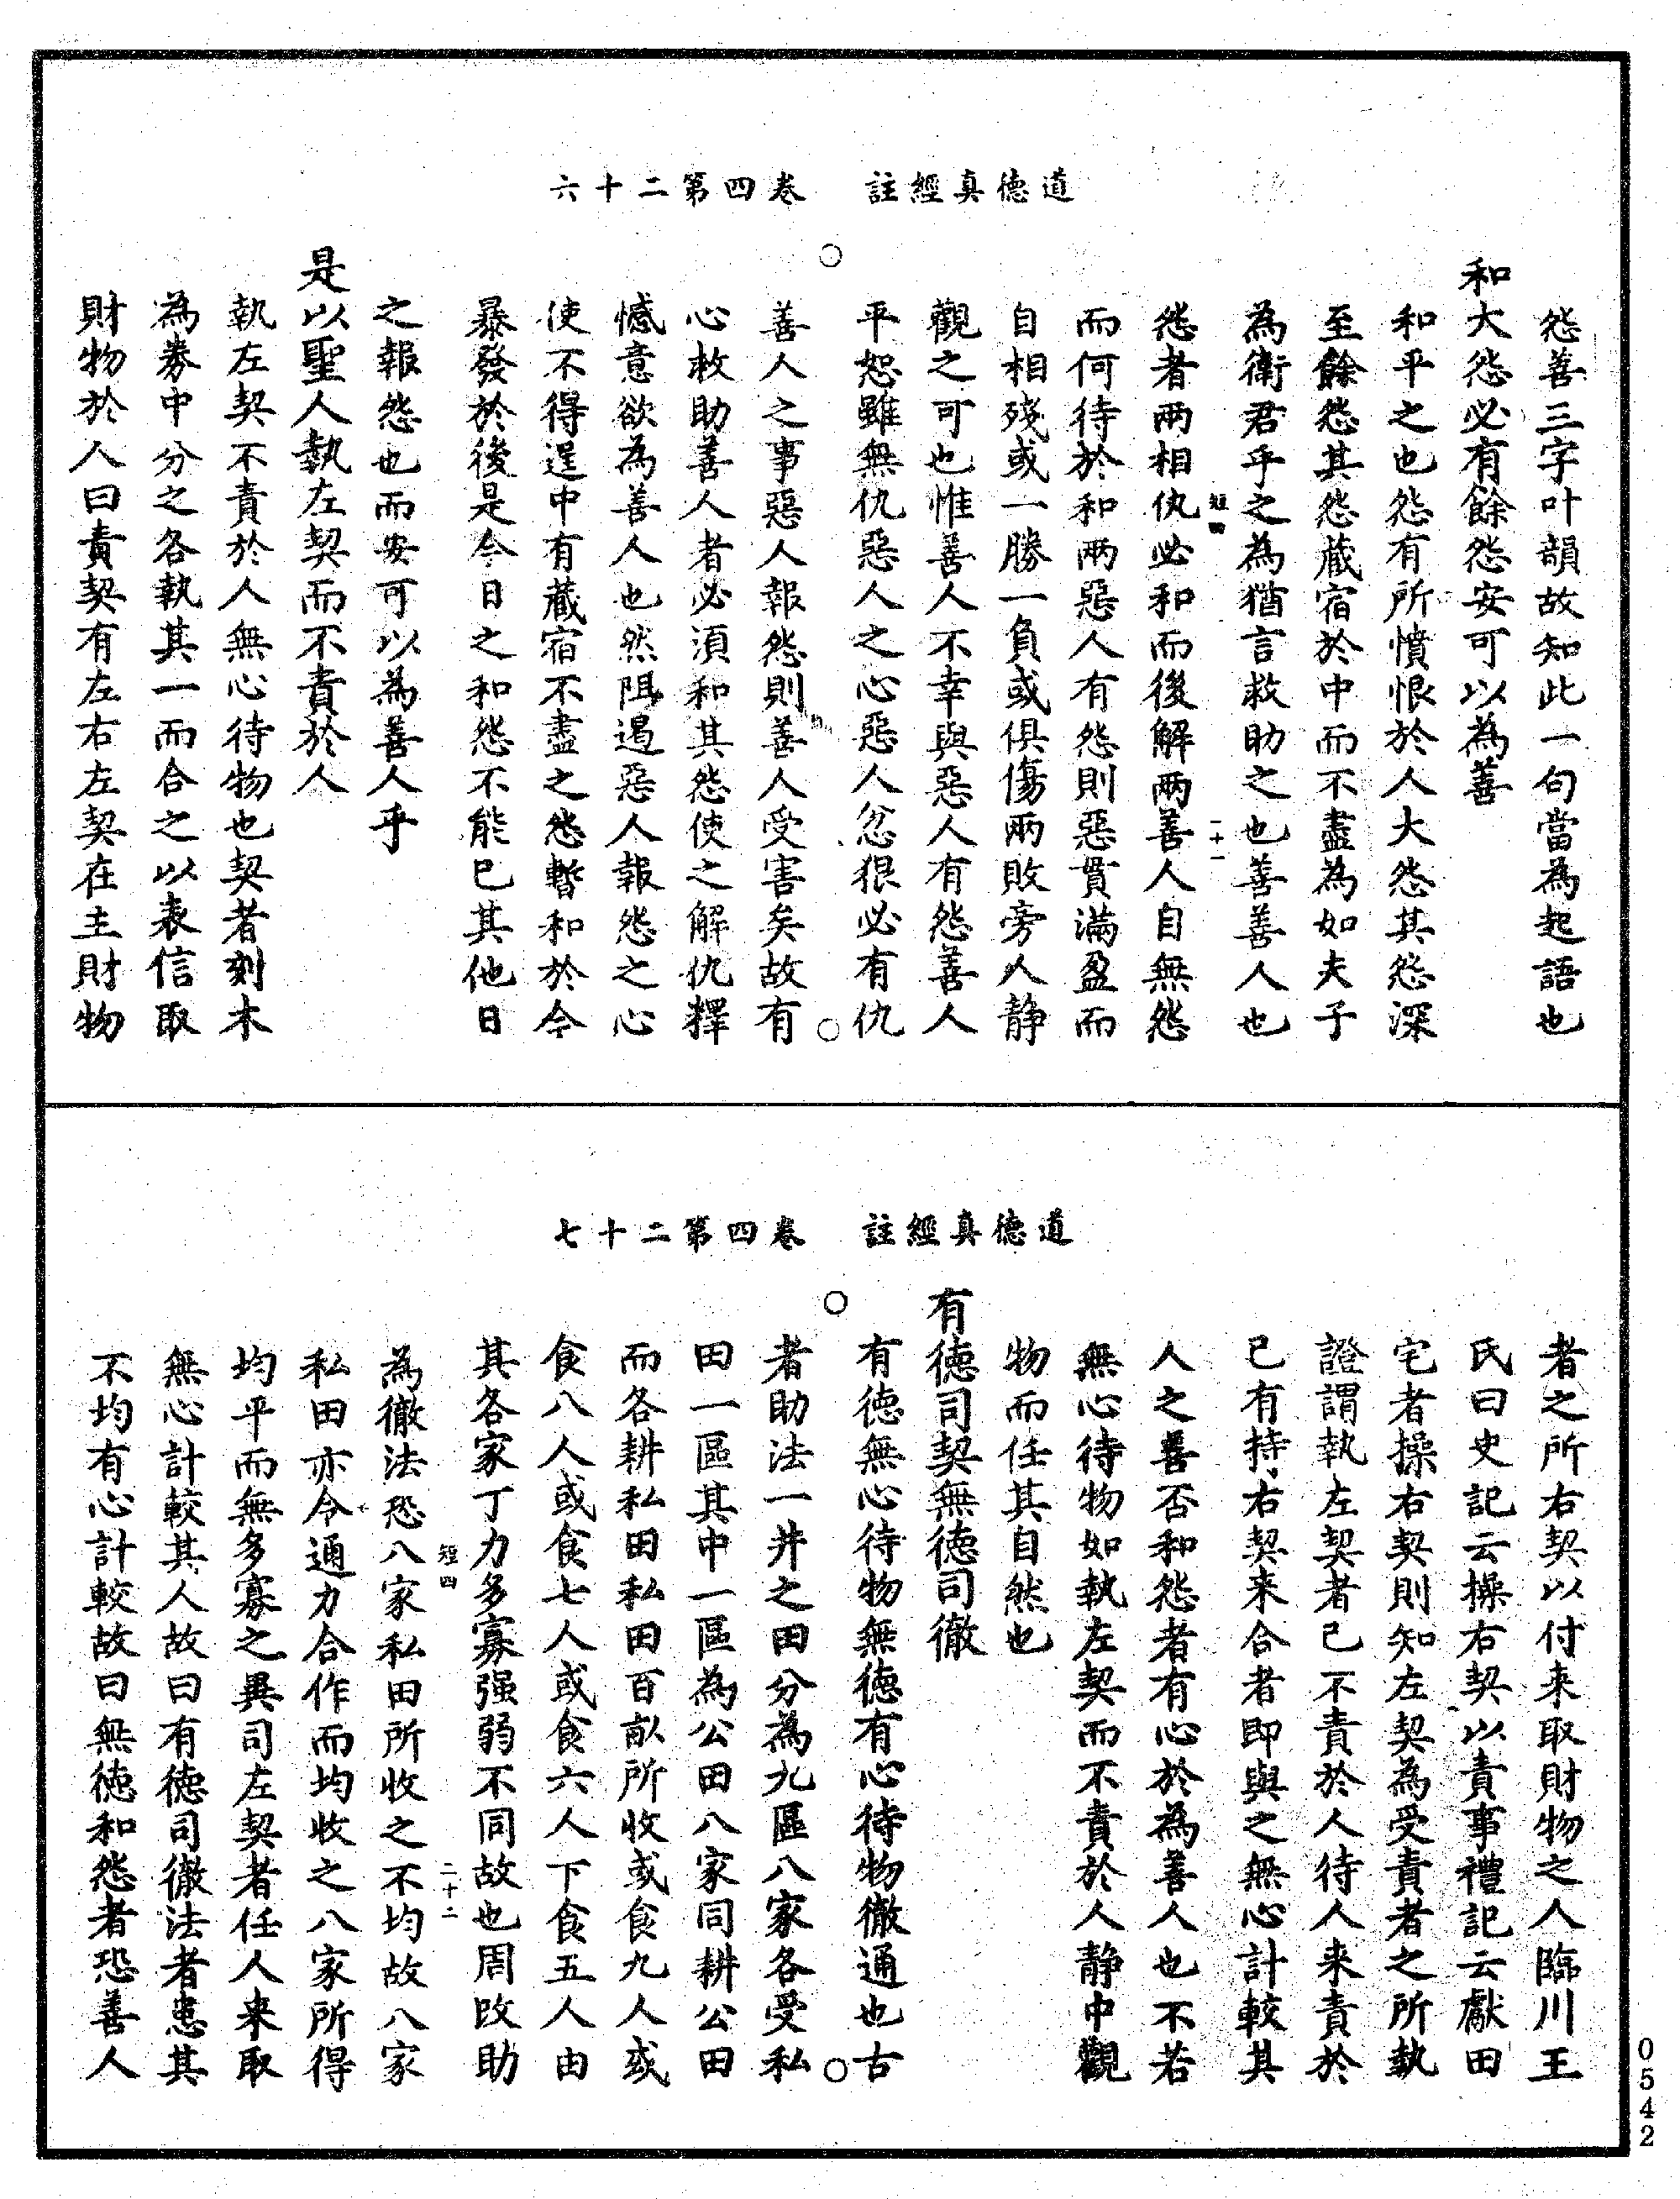 道德真經註　卷四第二十六
怨善三字叶韻故知此一句當為起語也
和大怨必有餘怨安可以為善
和平之也怨有所憤恨於人大怨其怨深
至餘怨其怨藏宿於中而不盡為如夫子
為衛君乎之為猶言救助之也善善人也
怨者兩相仇必和而後解兩善人自無怨
短四
二十一
而何待於和兩惡人有怨則惡貫滿盈而
自相殘或一勝一負或俱傷兩敗旁人靜
觀之可也惟善人不幸與惡人有怨善人
平恕雖無仇惡人之心惡人忿狠必有仇
善人之事惡人報怨則善人受害矣故有
心救助善人者必須和其怨使之解仇釋
憾意欲為善人也然阻遏惡人報怨之心
使不得逞中有藏宿不盡之怨暫和於今
暴發於後是今日之和怨不能已其他日
之報怨也而安可以為善人乎
是以聖人執左契而不責於人
執左契不責於人無心待物也契者刻木
為券中分之各執其一而合之以表信取
財物於人曰責契有左右左契在主財物
道德真經註　卷四第二十七
者之所右契以付来取財物之人臨川王
氏曰史記云操右契以責事禮記云獻田
宅者操右契則知左契為受責者之所執
證謂執左契者己不責於人待人来責於
己有持右契来合者即與之無心計較其
人之善否和怨者有心於為善人也不若
無心待物如執左契而不責於人靜中觀
物而任其自然也
有德司契無德司徹
有德無心待物無德有心待物徹通也古
者助法一井之田分為九區八家各受私
田一區其中一區為公田八家同耕公田
而各耕私田私田百畝所收或食九人或
食八人或食七人或食六人下食五人由
其各家丁力多寡强弱不同故也周改助
短四
二十二
為徹法恐八家私田所收之不均故八家
私田亦令通力合作而均收之八家所得
均平而無多寡之異司左契者任人来取
無心計較其人故曰有德司徹法者患其
不均有心計較故曰無德和怨者恐善人
0542